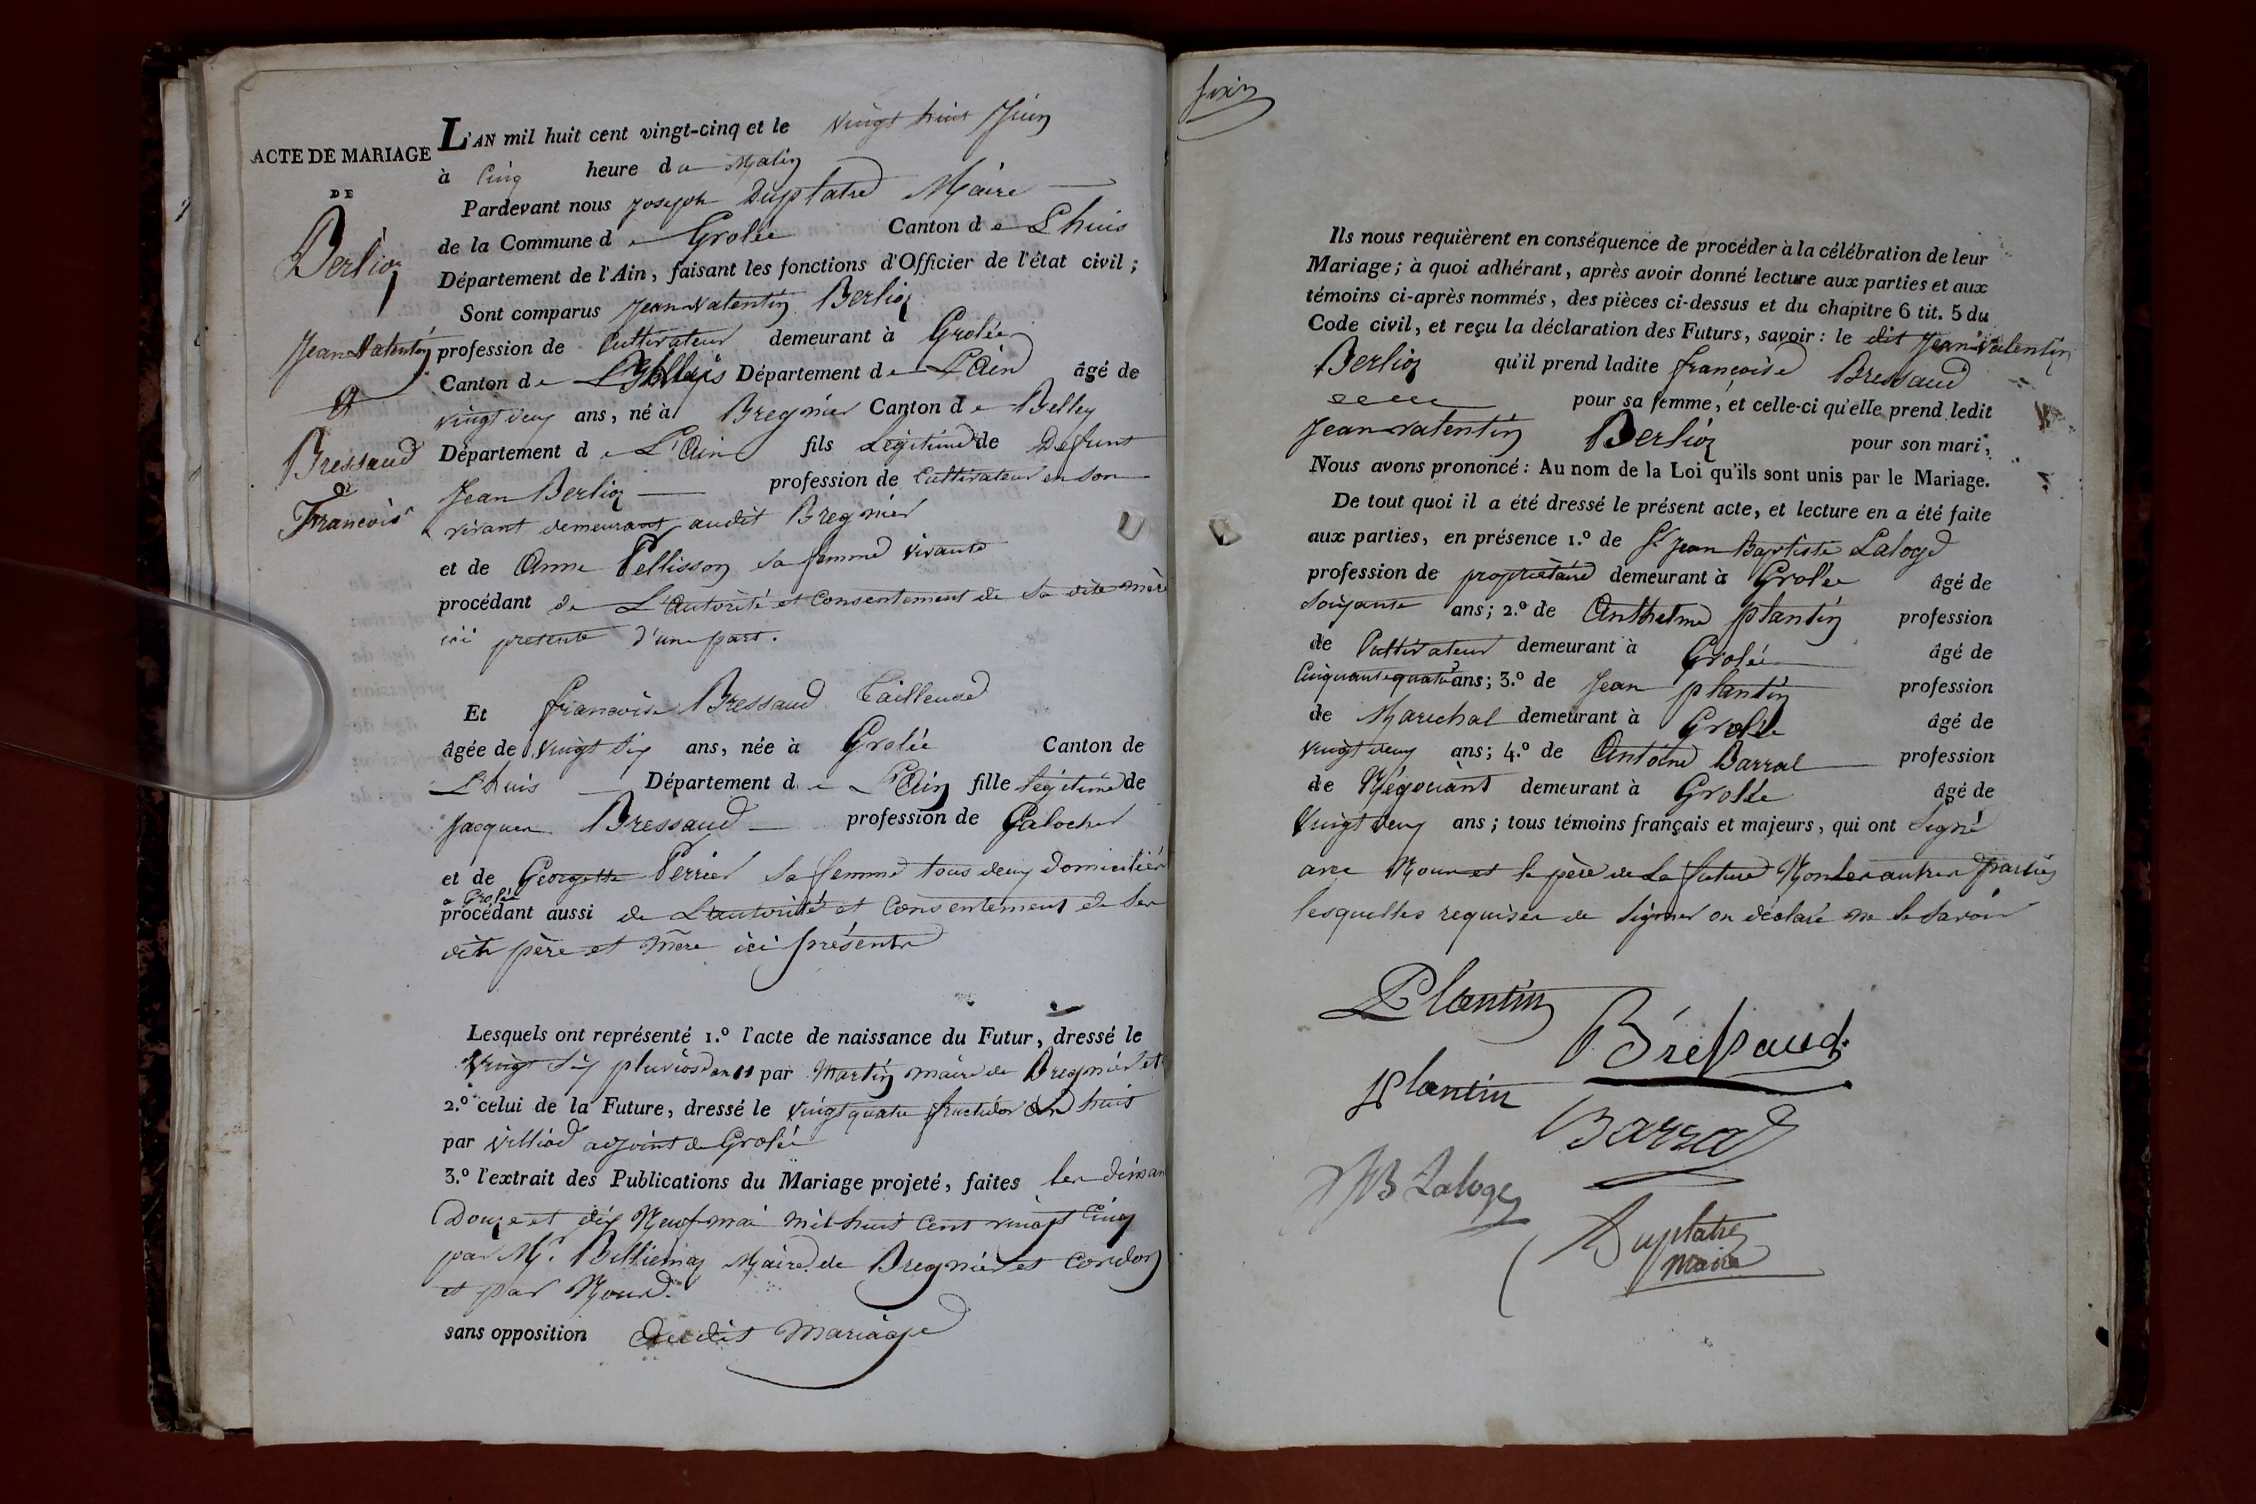 ACTE DE MARIAGE
DE
Berlioz
Jean Valentin
et
Bressaud
François
L'AN mil huit cent vingt-cinq et le vingt huit Juin
à Cinq heure du Matin
Pardevant nous Joseph Duplatre Maire
de la Commune de Grolée Canton de Lhuis
Département de l'Ain, faisant les fonctions d'Officier de l'état civil;
Sont comparus Jean Valentin Berlioz
profession de Cultivateur demeurant à Grolée
Canton de Département de L'Ain âgé de
vingt deux ans, né à Bregnier Canton de Belley
Département de L'Ain fils Légitime de Defunt
Jean Berlioz profession de Cultivateur en son
vivant demeurant audit Bregnier
et de Anne Pellisson sa femme vivante
procédant de L'autorité et Consentement de sa dite mère
ici presente d'une part.
Et francoise Bressaud Tailleuse
âgée de vingt six ans, née à Grolée Canton de
Lhuis Département de L'Ain fille légitime de
Jacques Bressaud profession de Galocher
et de Georgette Perrier sa femme tous deux domiciliés
a Grolée
procédant aussi de L'autorité et Consentement de ses
dits père et Mère ici présents
Lesquels ont représenté 1.º l'acte de naissance du Futur, dressé le
vingt six pluviose an 11 par Martin maire de Bregnier et
2.º celui de la Future, dressé le vingt quatre fructidor an huit
par Villiod adjoint de Grolée
3.º l'extrait des Publications du Mariage projeté, faites les diman
Douze et dix Neuf mai mil huit Cent vingt Cinq
par Mr. Maire de Bregnier et Cordon
et par Nous.
sans opposition audit Mariage
Ils nous requièrent en conséquence de procéder à la célébration de leur
Mariage; à quoi adhérant, après avoir donné lecture aux parties et aux
témoins ci-après nommés, des pièces ci-dessus et du chapitre 6 tit. 5 du
Code civil, et reçu la déclaration des Futurs, savoir: le dit Jean Valentin
Berlioz qu'il prend ladite françoise Bressaud
pour sa femme, et celle-ci qu'elle prend ledit
Jean Valentin Berlioz pour son mari;
Nous avons prononcé: Au nom de la Loi qu'ils sont unis par le Mariage.
De tout quoi il a été dressé le présent acte, et lecture en a été faite
aux parties, en présence 1.º de Sr Jean Baptiste Laloge
profession de propriétaire demeurant à Grolée âgé de
Soixante ans; 2.º de Anthelme plantin profession
de Cultivateur demeurant à Grolée âgé de
Cinquante quatre ans; 3.º de Jean plantin profession
de Marechal demeurant à Grolée âgé de
vingt deux ans; 4.º de Antoine Barral profession
de Négociant demeurant à Grolée âgé de
Vingt deux ans; tous témoins français et majeurs, qui ont Signé
avec Nous et le père de La future Non les autres parties
lesquelles requises de Signer on déclaré ne le Savoir
Plantin
Bréssaud
Plantin
Barral
JB Laloge
Duplatre
Maire